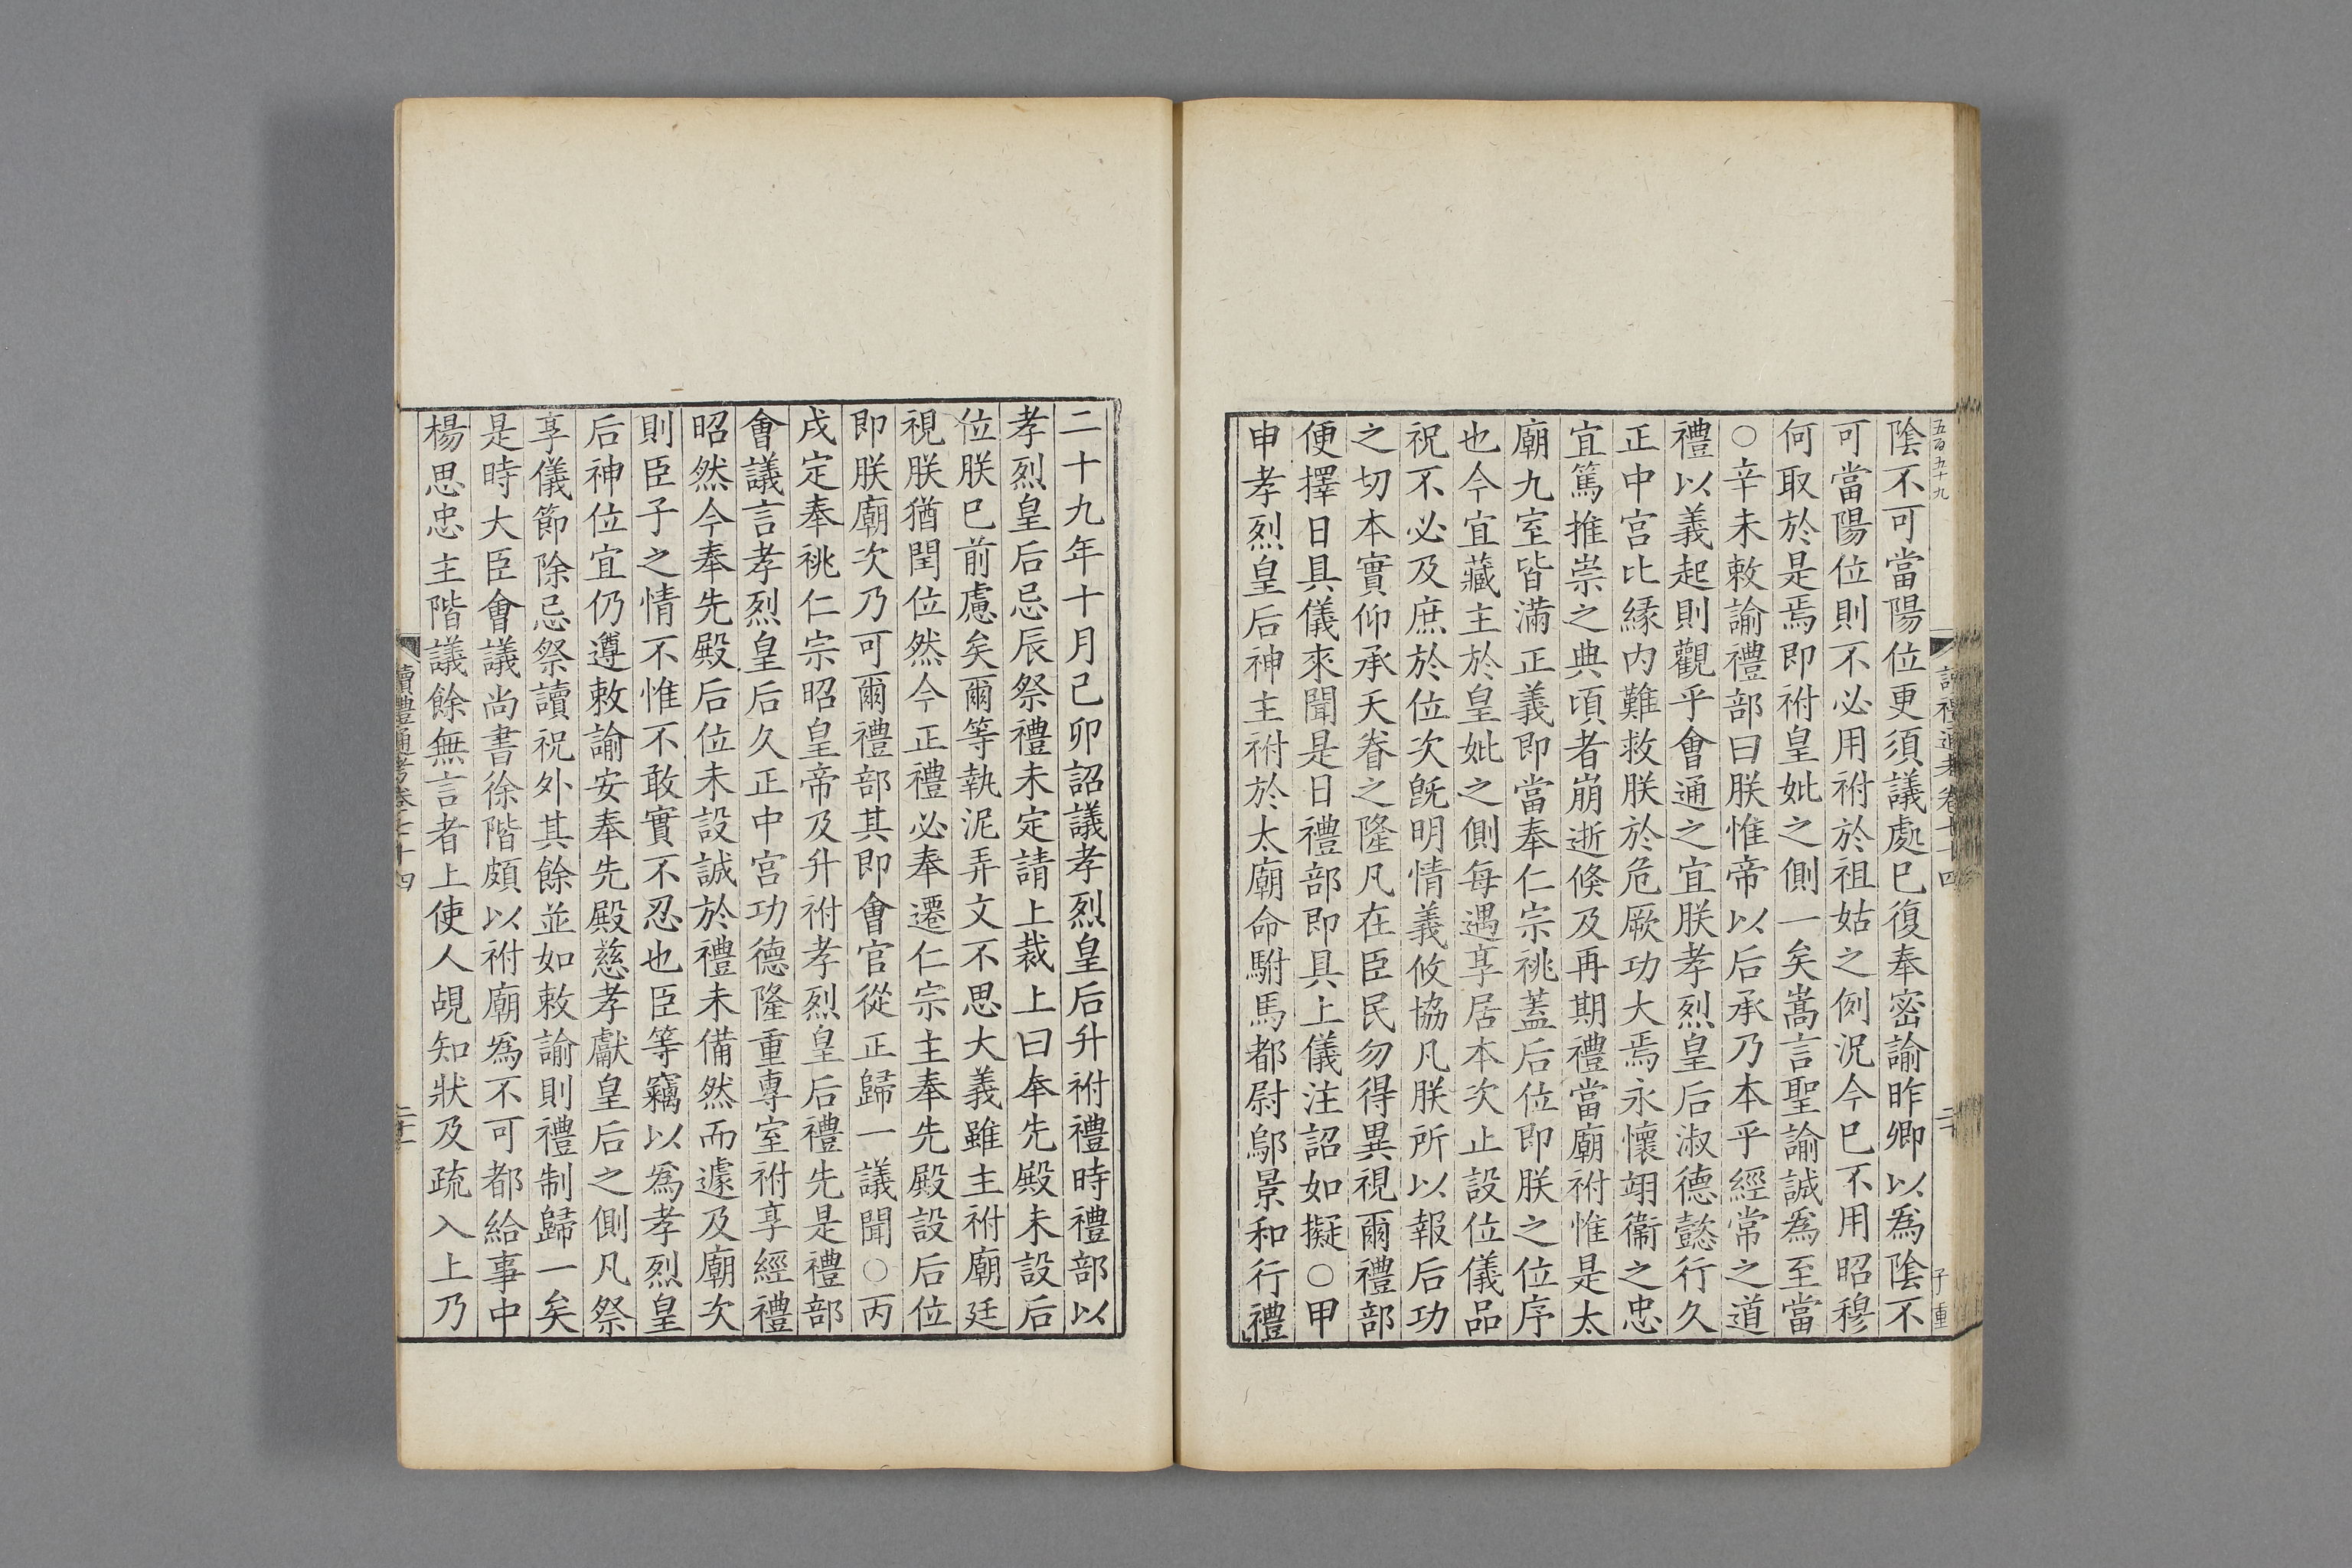 五百五十九
讀禮通考卷七十四
二十
子重
陰不可當陽位更須議處巳復奉密諭昨卿以爲陰不
可當陽位則不必用祔於祖姑之例況今巳不用昭穆
何取於是焉即祔皇妣之側一矣嵩言聖諭誠爲至當
○辛未敕諭禮部曰朕惟帝以后承乃本乎經常之道
禮以義起則觀乎會通之宜朕孝烈皇后淑德懿行久
正中宫比縁内難救朕於危厥功大焉永懷翊衞之忠
宜篤推崇之典頃者崩逝倐及再期禮當廟祔惟是太
廟九室皆滿正義即當奉仁宗祧蓋后位即朕之位序
也今宜藏主於皇妣之側每遇享居本次止設位儀品
祝不必及庶於位次旣明情義攸協凡朕所以報后功
之切本實仰承天眷之隆凡在臣民勿得異視爾禮部
便擇日具儀來聞是日禮部即具上儀注詔如擬○甲
申孝烈皇后神主祔於太廟命駙馬都尉鄔景和行禮
二十九年十月己卯詔議孝烈皇后升祔禮時禮部以
孝烈皇后忌辰祭禮未定請上裁上曰奉先殿未設后
位朕巳前慮矣爾等執泥弄文不思大義雖主祔廟廷
視朕猶閏位然今正禮必奉遷仁宗主奉先殿設后位
即朕廟次乃可爾禮部其即會官從正歸一議聞○丙
戌定奉祧仁宗昭皇帝及升祔孝烈皇后禮先是禮部
會議言孝烈皇后久正中宫功德隆重專室祔享經禮
昭然今奉先殿后位未設誠於禮未備然而遽及廟次
則臣子之情不惟不敢實不忍也臣等竊以爲孝烈皇
后神位宜仍遵敕諭安奉先殿慈孝獻皇后之側凡祭
享儀節除忌祭讀祝外其餘並如敕諭則禮制歸一矣
是時大臣會議尚書徐階頗以祔廟爲不可都給事中
楊思忠主階議餘無言者上使人覘知狀及疏入上乃
讀禮通考卷七十四
二十一